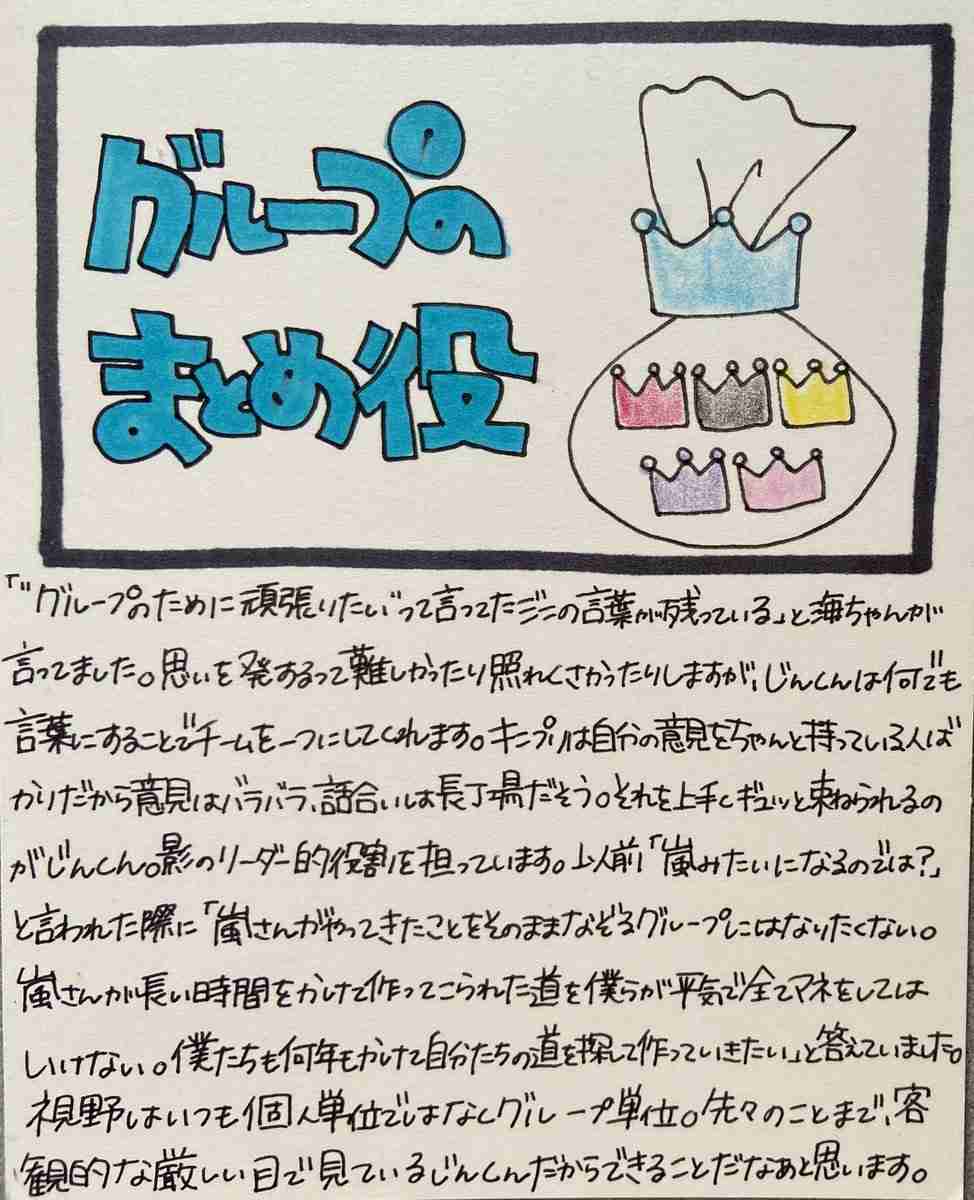 グループの
まとめ役
「"グループのために頑張りたい"って言ってたジンの言葉が残っている」と海ちゃんが
言ってました。思いを発するって難しかったり照れくさかったりしますが、じんくんは何でも
言葉にすることでチームを一つにしてくれます。キンプリは自分の意見をちゃんと持っている人ば
かりだから意見はバラバラ、話合いは長丁場だそう。それを上手くギュッと束ねられるの
がじんくん。影のリーダー的役割を担っています。以前「嵐みたいになるのでは?」
と言われた際に「嵐さんがやってきたことをそのままなぞるグループにはなりたくない。
嵐さんが長い時間をかけて作ってこられた道を僕らが平気で全てマネをしては
いけない。僕たちも何年もかけて自分たちの道を探して作っていきたい」と答えていました。
視野はいつも個人単位ではなくグループ単位。先々のことまで、客
観的な厳しい目で見ているじんくんだからできることだなあと思います。